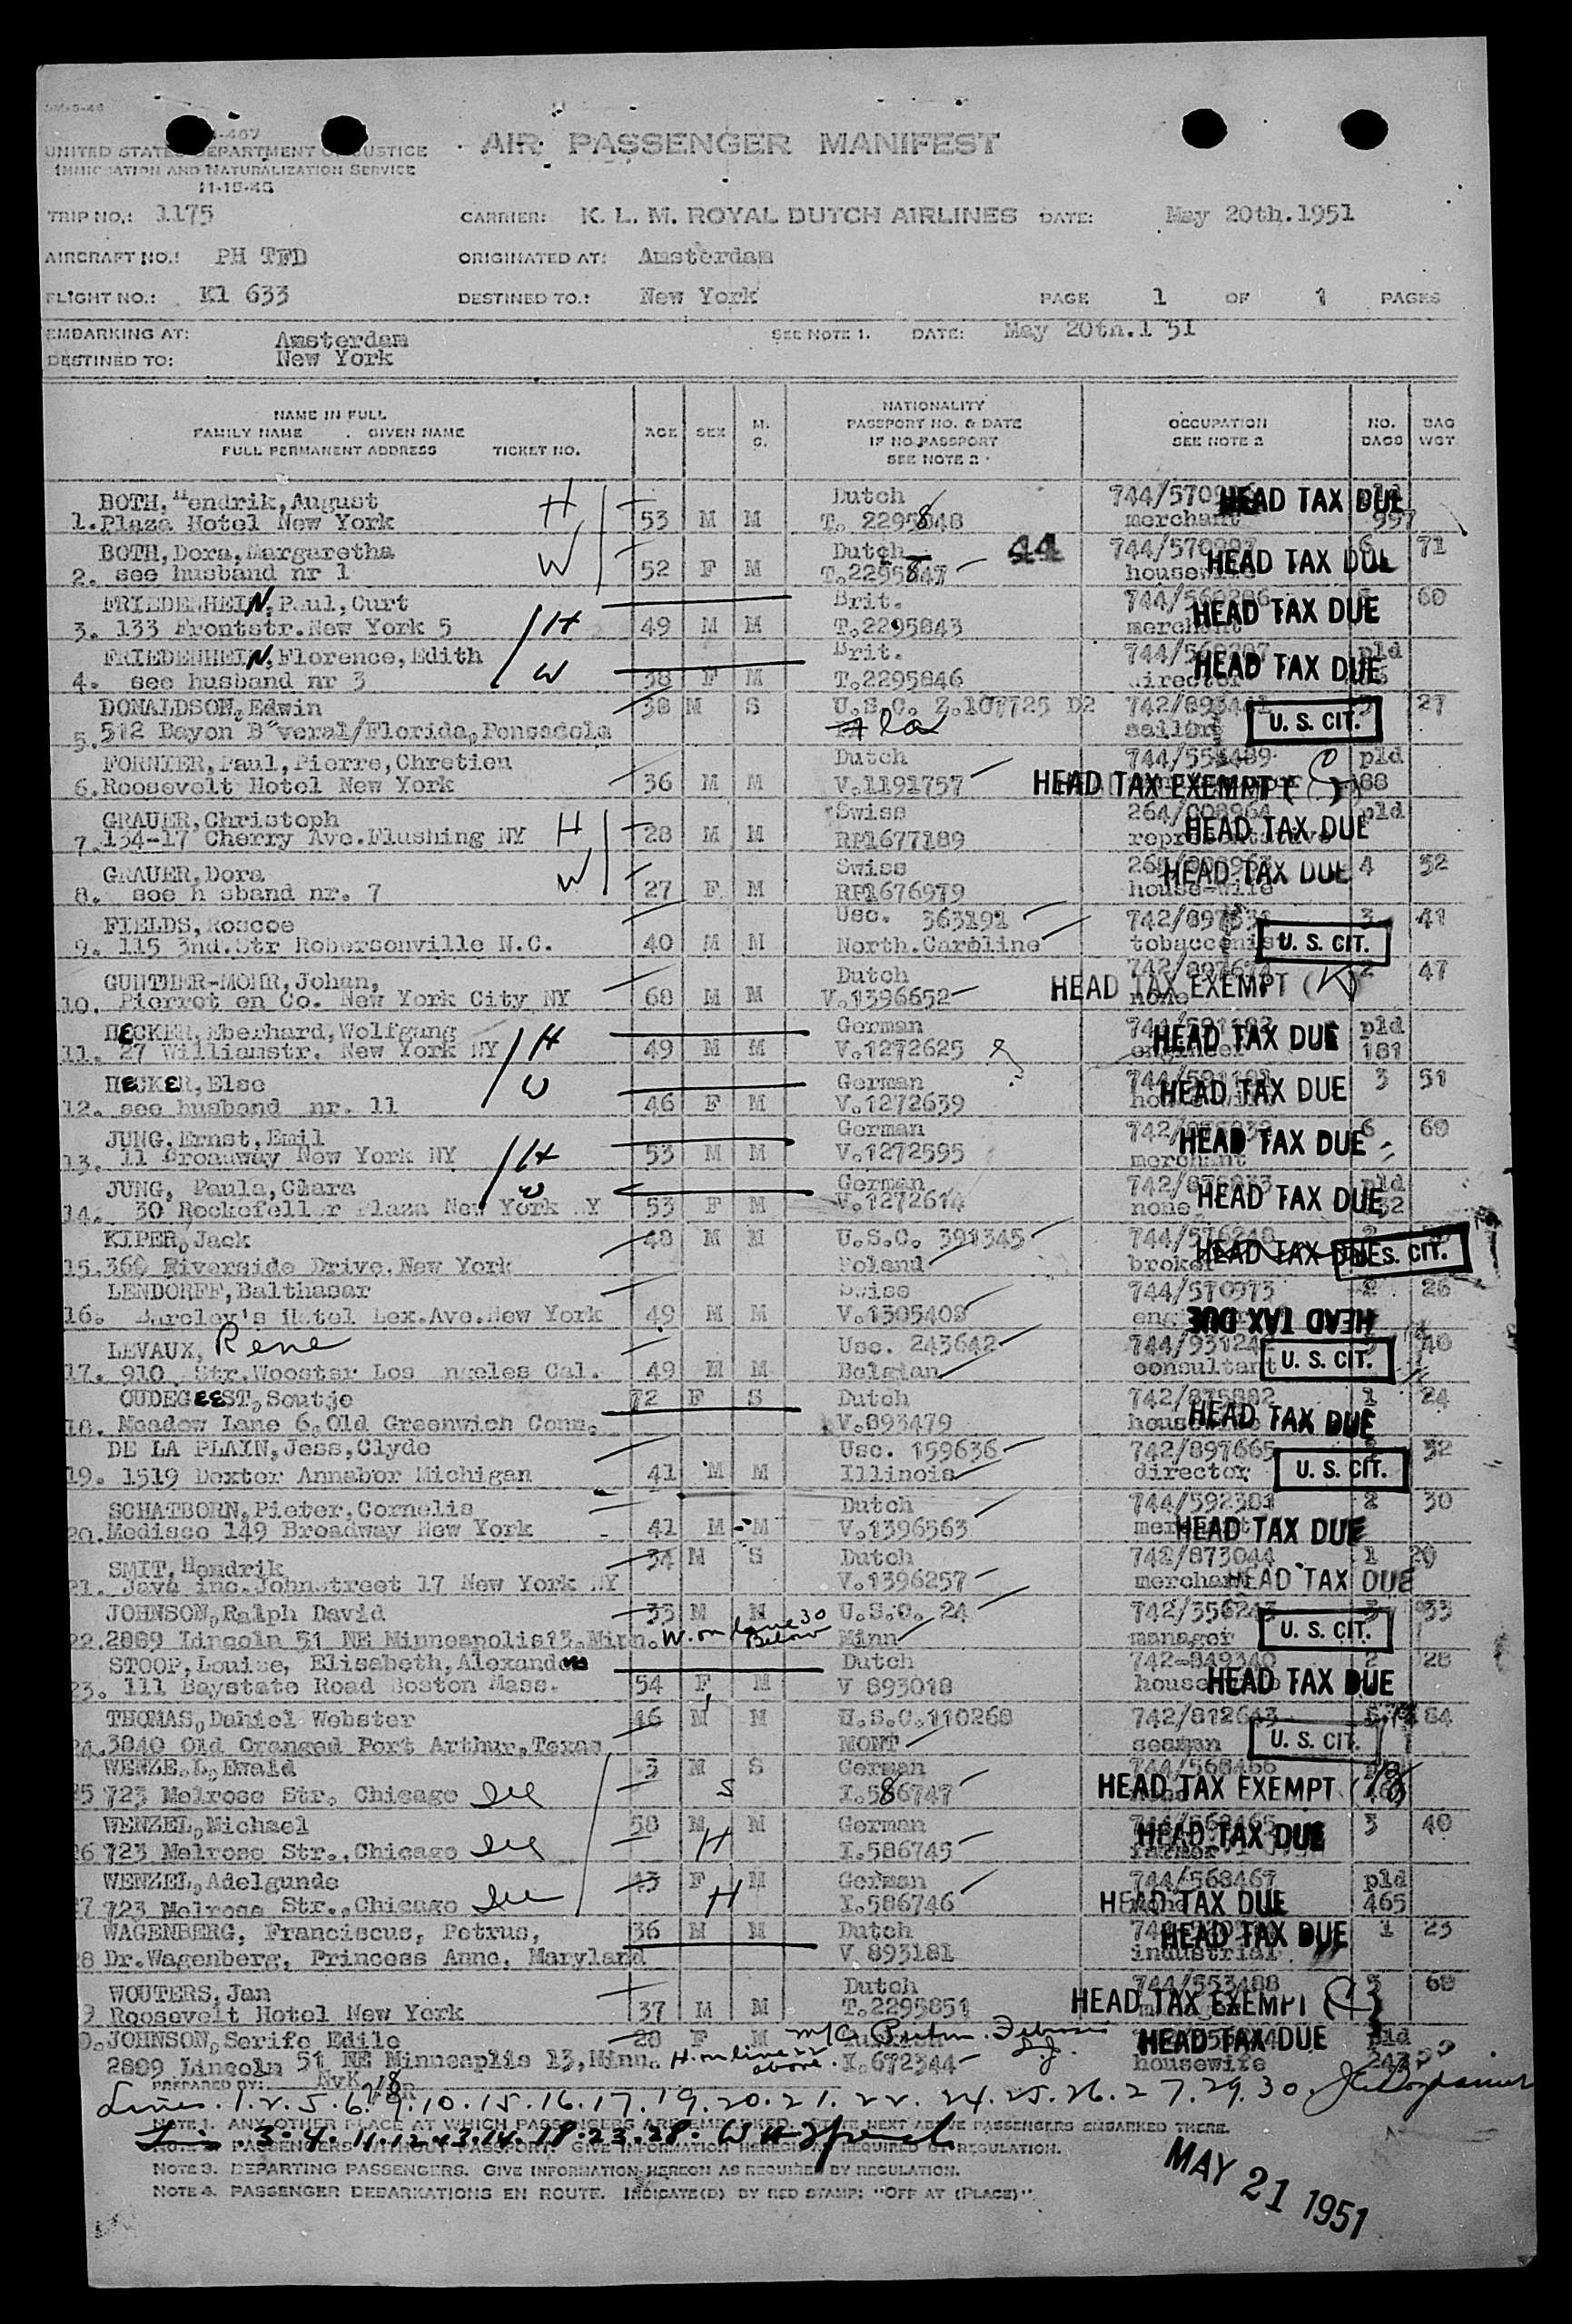 UNITED STATES DEPARTMENT OF JUSTICE
IMMIGRATION AND NATURALIZATION SERVICE
11-15-45
AIR PASSENGER MANIFEST
TRIP NO.: 1175 CARRIER: K. L. M. ROYAL DUTCH AIRLINES DATE: May 20th.1951
AIRCRAFT NO.: PH TFD ORIGINATED AT: Amsterdam
FLIGHT NO.: Kl 633 DESTINED TO.: New York PAGE 1 OF 1 PAGES
EMBARKING AT: Amsterdam SEE NOTE 1. DATE: May 20th.1 51
DESTINED TO: New York
NAME IN FULL
FAMILY NAME GIVEN NAME
FULL PERMANENT ADDRESS TICKET NO.
AGE SEX M. S.
NATIONALITY
PASSPORT NO. & DATE
IF NO PASSPORT
SEE NOTE 2
OCCUPATION
SEE NOTE 2
NO. BAGS BAG WGT
BOTH, Hendrik, August H Dutch HEAD TAX DUE
1. Plaza Hotel New York 53 M M T. 2295848 merchant 997
BOTH, Dora, Margaretha W Dutch 44 HEAD TAX DUE 71
2. see husband nr 1 52 F M T.2295847 housewife
FRIEDENHEIN, Paul, Curt Brit. HEAD TAX DUE 60
3. 133 Frontstr.New York 5 H 49 M M T.2295843 merchant
FRIEDENHEIN, Florence, Edith Brit. pld HEAD TAX DUE
4. see husband nr 3 W 38 F M T.2295846 director
DONALDSON, Edwin 38 M S U.S.C. Z.107725 D2 27
5. 512 Bayon B veral/Florida, Pensadola Fla sailor U. S. CIT.
FORNIER, Paul, Pierre, Chretien Dutch 744/553489 pld
6. Roosevelt Hotel New York 36 M M V.1191757 HEAD TAX EXEMPT (C) 88
GRAUER, Christoph H Swiss 264/008964 pld
7. 134-17 Cherry Ave.Flushing NY 28 M M RP1677189 representative HEAD TAX DUE
GRAUER, Dora W Swiss HEAD TAX DUE 4 32
8. see h sband nr. 7 27 F M RP1676979 house-wife
FIELDS, Roscoe Usc. 363191 3 41
9. 115 3nd.Str Robersonville N.C. 40 M M North.Caroline tobacconist U. S. CIT.
GUNTHER-MOHR, Johan, Dutch 742/897674 2 47
10. Pierrot en Co. New York City NY 68 M M V.1396652 none HEAD TAX EXEMPT (K)
HECKER, Eberhard, Wolfgang German HEAD TAX DUE pld
11. 27 Williamstr. New York NY H 49 M M V.1272625 engineer 181
HECKER, Else W German HEAD TAX DUE 3 51
12. see husband nr. 11 46 F M V.1272639
JUNG, Ernst, Emil German HEAD TAX DUE 6 60
13. 11 Broadway New York NY H 53 M M V.1272595 merchant
JUNG, Paula, Clara W German pld
14. 30 Rockefeller Plaza New York NY 53 F M V.1272614 none HEAD TAX DUE
KIPER, Jack 48 M M U.S.C. 391345 744/576248 2
15. 360 Riverside Drive. New York Poland broker HEAD TAX DUE U. S. CIT.
LENDORFF, Balthasar Swiss 744/570973 2 26
16. Barcley's Hotel Lex.Ave.New York 49 M M V.1305408 HEAD TAX DUE
LEVAUX, Rene Usc. 243642 40
17. 910 Str.Wooster Los ngeles Cal. 49 M M Belgian consultant U. S. CIT.
OUDEGEEST, Soutje 72 F S Dutch 742/875882 1 24
18. Meadow Lane 6, Old Greenwich Conn. V.893479 HEAD TAX DUE
DE LA PLAIN, Jess, Clyde Usc. 159636 742/897665 2 32
19. 1519 Dexter Annabor Michigan 41 M M Illinois director U. S. CIT.
SCHATBORN, Pieter, Cornelis Dutch 744/592381 2 30
20. Medisco 149 Broadway New York 41 M M V.1396563 merchant HEAD TAX DUE
SMIT, Hendrik 34 M S Dutch 742/873044 1 20
21. Java inc.Johnstreet 17 New York NY V.1396257 merchant HEAD TAX DUE
JOHNSON, Ralph David 33 M M U.S.C. 24 3 33
22. 2809 Lincoln 51 NE Minneapolis13.Minn. W. on line 30 Below Minn manager U. S. CIT.
STOOP, Louise, Elisabeth, Alexandra Dutch 742-849340 2 28
23. 111 Baystate Road Boston Mass. 54 F M V 893018 HEAD TAX DUE
THOMAS, Daniel Webster 46 M M U.S.C.110268 742/812643 84
24. 3840 Old Oranged Port Arthur, Texas MONT seaman U. S. CIT.
WENZE.L, Ewald 3 M S German
25 723 Melrose Str. Chicago Ill S I.586747 HEAD TAX EXEMPT
WENZEL, Michael 58 M M German 3 40
26 723 Melrose Str., Chicago Ill H I.586745 farmer HEAD TAX DUE
WENZEL, Adelgunde 43 F M German 744/568467 pld
27 723 Melrose Str., Chicago Ill H I.586746 HEAD TAX DUE 465
WAGENBERG, Franciscus, Petrus, 36 M M Dutch HEAD TAX DUE 1 23
28 Dr.Wagenberg, Princess Anne, Maryland V 893181 industrial
WOUTERS, Jan Dutch 744/553488 3 60
9 Roosevelt Hotel New York 37 M M T.2295851 HEAD TAX EXEMPT (C)
0. JOHNSON, Serife Edile 28 F M HEAD TAX DUE pld
2809 Lincoln 51 NE Minneaplis 13, Minn. H. on line 22 above. I.672344 housewife
PREPARED BY:
Lines. 1. 2. 5. 6. 9. 10. 15. 16. 17. 19. 20. 21. 22. 24. 25. 26. 27. 29. 30.
NOTE 1. ANY OTHER PLACE AT WHICH PASSENGERS ARE EMBARKED. STATE NEXT ABOVE PASSENGERS EMBARKED THERE.
3. 4. 11. 12. 13. 14. 18. 23. 28.
PASSENGERS WITHOUT PASSPORT. GIVE INFORMATION HEREON AS REQUIRED BY REGULATION.
NOTE 3. DEPARTING PASSENGERS. GIVE INFORMATION HEREON AS REQUIRED BY REGULATION.
NOTE 4. PASSENGER DEBARKATIONS EN ROUTE. INDICATE(D) BY RED STAMP: "OFF AT (PLACE)".
MAY 21 1951